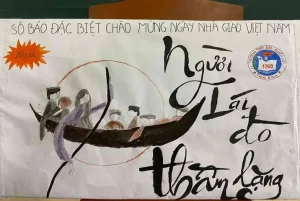 SỐ BÁO ĐẶC BIỆT CHÀO MỪNG NGÀY NHÀ GIÁO VIỆT NAM
Người
Lái
đò
thầm lặng
1960